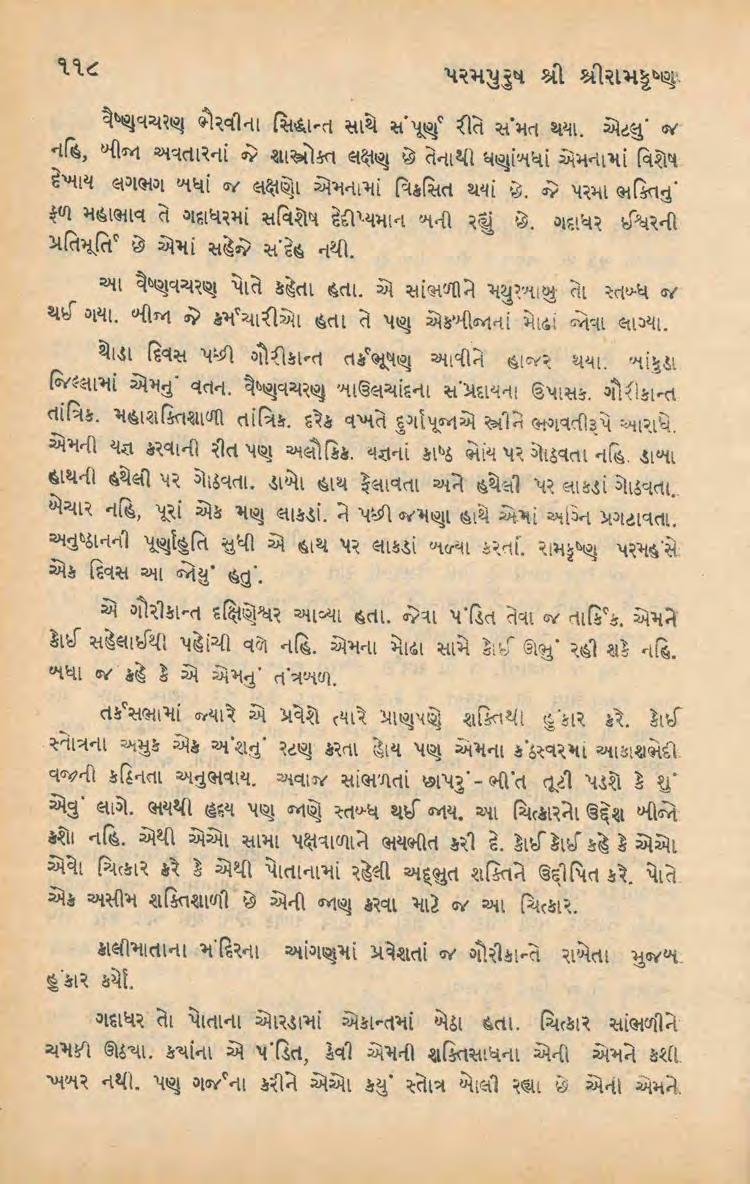 ૧૧૮
પરમપુરુષ શ્રી શ્રીરામકૃષ્ણ
વૈષ્ણવચરણ ભૈરવીના સિદ્ધાન્ત સાથે સંપૂર્ણ રીતે સંમત થયા. એટલું જ
નહિ, બીજા અવતારનાં જે શાસ્ત્રોક્ત લક્ષણ છે તેનાથી ઘણાંબધાં એમનામાં વિશેષ
દેખાય લગભગ બધાં જ લક્ષણો એમનામાં વિકસિત થયાં છે. જે પરમા ભક્તિનું
ફળ મહાભાવ તે ગદાધરમાં સવિશેષ દેદીપ્યમાન બની રહ્યું છે. ગદાધર ઈશ્વરની
પ્રતિમૂર્તિ છે એમાં સહેજે સંદેહ નથી.
આ વૈષ્ણવચરણ પોતે કહેતા હતા. એ સાંભળીને મથુરબાબુ તો સ્તબ્ધ જ
થઈ ગયા. બીજા જે કર્મચારીઓ હતા તે પણ એકબીજાનાં મોઢાં જોવા લાગ્યા.
થોડા દિવસ પછી ગૌરીકાન્ત તર્કભૂષણ આવીને હાજર થયા. બાંકુડા
જિલ્લામાં એમનું વતન. વૈષ્ણવચરણ બાઉલચાંદના સંપ્રદાયના ઉપાસક. ગૌરીકાન્ત
તાંત્રિક. મહાશક્તિશાળી તાંત્રિક. દરેક વખતે દુર્ગાપૂજાએ સ્ત્રીને ભગવતીરૂપે આરાધે.
એમની યજ્ઞ કરવાની રીત પણ અલૌકિક. યજ્ઞનાં કાષ્ઠ ભોંય પર ગોઠવતા નહિ. ડાબા
હાથની હથેલી પર ગોઠવતા. ડાબો હાથ ફેલાવતા અને હથેલી પર લાકડાં ગોઠવતા.
બેચાર નહિ, પૂરાં એક મણ લાકડાં. ને પછી જમણા હાથે એમાં અગ્નિ પ્રગટાવતા.
અનુષ્ઠાનની પૂર્ણાહુતિ સુધી એ હાથ પર લાકડાં બળ્યા કરતાં. રામકૃષ્ણ પરમહંસે
એક દિવસ આ જોયું હતું.
એ ગૌરીકાન્ત દક્ષિણેશ્વર આવ્યા હતા. જેવા પંડિત તેવા જ તાર્કિક. એમને
કોઈ સહેલાઈથી પહોંચી વળે નહિ. એમના મોઢા સામે કોઈ ઊભું રહી શકે નહિ.
બધા જ કહે કે એ એમનું તંત્રબળ.
તર્કસભામાં જ્યારે એ પ્રવેશે ત્યારે પ્રાણપણે શક્તિથી હુંકાર કરે. કોઈ
સ્તોત્રના અમુક એક અંશનું રટણ કરતા હોય પણ એમના કંઠસ્વરમાં આકાશભેદી
વજ્રની કઠિનતા અનુભવાય. અવાજ સાંભળતાં છાપરું-ભીંત તૂટી પડશે કે શું
એવું લાગે. ભયથી હૃદય પણ જાણે સ્તબ્ધ થઈ જાય. આ ચિત્કારનો ઉદ્દેશ બીજો
કશો નહિ. એથી એઓ સામા પક્ષવાળાને ભયભીત કરી દે. કોઈ કોઈ કહે કે એઓ
એવો ચિત્કાર કરે કે એથી પોતાનામાં રહેલી અદ્ભુત શક્તિને ઉદ્દીપિત કરે. પોતે
એક અસીમ શક્તિશાળી છે એની જાણ કરવા માટે જ આ ચિત્કાર.
કાલીમાતાના મંદિરના આંગણમાં પ્રવેશતાં જ ગૌરીકાન્તે રાબેતા મુજબ
હુંકાર કર્યો.
ગદાધર તો પોતાના ઓરડામાં એકાન્તમાં બેઠા હતા. ચિત્કાર સાંભળીને
ચમકી ઊઠ્યા. કયાંના એ પંડિત, કેવી એમની શક્તિસાધના એની એમને કશી
ખબર નથી. પણ ગર્જના કરીને એઓ કયું સ્તોત્ર બોલી રહ્યા છે એની એમને